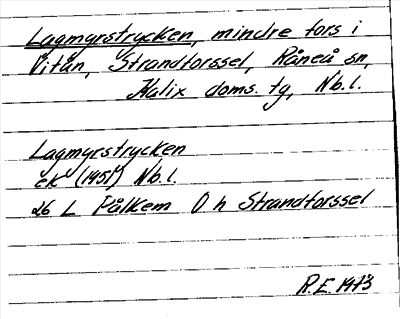 Lagmyrstrycken, mindre fors i
Vitån, Strandforssel, Råneå sn,
Kalix doms. tg, Nb.l.
Lagmyrstrycken
ek (1951) Nb.l.
26 L Pålkem 0 h Strandforssel
R.E. 1973